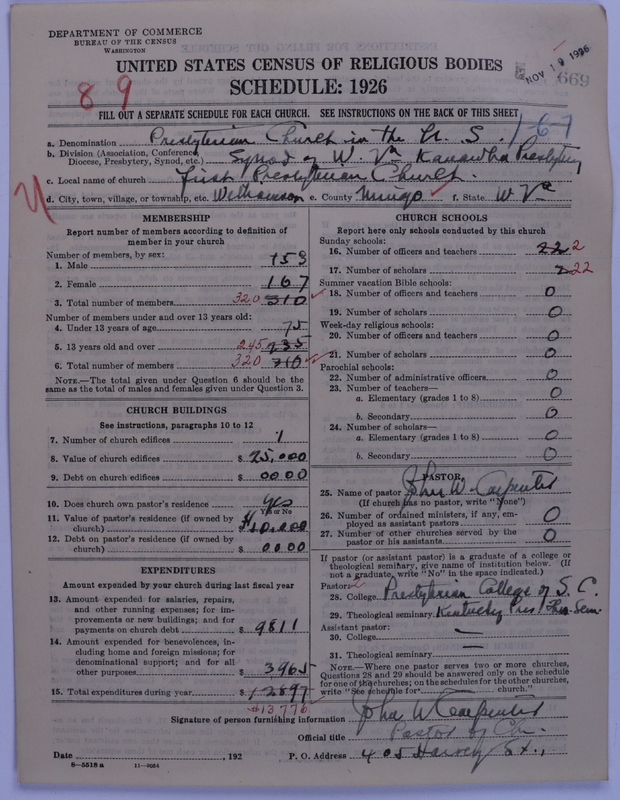 DEPARTMENT OF COMMERCE
BUREAU OF THE CENSUS
WASHINGTON
UNITED STATES CENSUS OF RELIGIOUS BODIES
SCHEDULE: 1926
NOV 1 9 1926
669
89
FILL OUT A SEPARATE SCHEDULE FOR EACH CHURCH. SEE INSTRUCTIONS ON THE BACK OF THIS SHEET
167
a. Denomination Presbyterian Church in the U. S.
b. Division (Association, Conference, Diocese, Presbytery, Synod, etc.) Synod of W. Va Kanawha Presbytery
c. Local name of church First Presbyterian Church.
d. City, town, village, or township, etc. Williamson e. County Mingo f. State W Va
MEMBERSHIP
Report number of members according to definition of member in your church
Number of members, by sex:
1. Male 153
2. Female 167
3. Total number of members 320 310
Number of members under and over 13 years old:
4. Under 13 years of age 75
5. 13 years old and over 245 235
6. Total number of members 320 310
NOTE.—The total given under Question 6 should be the same as the total of males and females given under Question 3.
CHURCH BUILDINGS
See instructions, paragraphs 10 to 12
7. Number of church edifices 1
8. Value of church edifices $ 25,000
9. Debt on church edifices $ 00.00
10. Does church own pastor's residence yes
Yes or No
11. Value of pastor's residence (if owned by church) $ 10,000
12. Debt on pastor's residence (if owned by church) $ 00.00
EXPENDITURES
Amount expended by your church during last fiscal year
13. Amount expended for salaries, repairs, and other running expenses; for improvements or new buildings; and for payments on church debt $ 9811
14. Amount expended for benevolences, including home and foreign missions; for denominational support; and for all other purposes $ 3965
15. Total expenditures during year $ 12897
$13776
CHURCH SCHOOLS
Report here only schools conducted by this church
Sunday schools:
16. Number of officers and teachers 22 2
17. Number of scholars 2 22
Summer vacation Bible schools:
18. Number of officers and teachers 0
19. Number of scholars 0
Week-day religious schools:
20. Number of officers and teachers 0
21. Number of scholars 0
Parochial schools:
22. Number of administrative officers 0
23. Number of teachers—
a. Elementary (grades 1 to 8) 0
b. Secondary 0
24. Number of scholars—
a. Elementary (grades 1 to 8) 0
b. Secondary 0
PASTOR
25. Name of pastor John W. Carpenter
(If church has no pastor, write "None")
26. Number of ordained ministers, if any, employed as assistant pastors 0
27. Number of other churches served by the pastor or his assistants 0
If pastor (or assistant pastor) is a graduate of a college or theological seminary, give name of institution below. (If not a graduate, write "No" in the space indicated.)
Pastor:
28. College Presbyterian College of S. C.
29. Theological seminary Kentucky Pres. Theo. Sem.
Assistant pastor:
30. College —
31. Theological seminary —
NOTE.—Where one pastor serves two or more churches, Questions 28 and 29 should be answered only on the schedule for one of the churches; on the schedules for the other churches, write "See schedule for church."
Signature of person furnishing information John W Carpenter
Official title Pastor of Ch.
Date , 192 P. O. Address 405 Harvey St.,
8—5518 a 11—9054